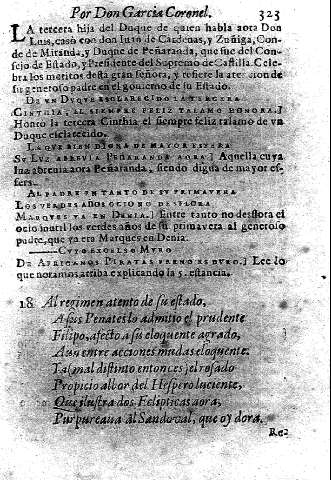 Por Don Garcia Coronel. 323
LA tercera hija del Duque de quien habla aora Don
Luis, casò con don Iuan de Cardenas, y Zuñiga, Con-
de de Miranda, y Duque de Peñaranda, que fue del Con-
sejo de Estado, y Presidente del Supremo de Castilla. Cele-
bra los meritos desta gran señora, y refiere la atencion de
su generoso padre en el gouierno de su Estado.
DE VN DVQVE ESCLARECIDO LA TERCERA
CINTHIA, AL SIEMPRE FELIZ TALAMO HONORA.]
Honrò la tercera Cinthia el siempre feliz talamo de vn
Duque esclarecido.
LA QVE BIEN DIGNA DE MAYOR ESFERA
SV LVZ ABREVIA PEÑARANDA AORA.] Aquella cuya
luz abreuia aora Peñaranda, siendo digna de mayor es-
fera.
AL PADRE EN TANTO DE SV PRIMAVERA
LOS VERDES AÑOS OCIO NO DESFLORA
MARQVES YA EN DENIA.] Entre tanto no desflora el
ocio inutil los verdes años de su primavera al generoso
padre, que ya era Marques en Denia.
CVYO EXCELSO MVRO
DE AFRICANOS PIRATAS FRENO ES DVRO.] Lee lo
que notamos arriba explicando la 5. estancia.
18. Al regimen atento de su estado,
A sus Penates lo admitio el prudente
Filipo, afecto a su eloquente agrado,
Aun entre acciones mudas eloquente.
Tal mal distinto entonces, el rosado
Propicio albor del Hespero luciente,
Que ilustra dos Eclipticas aora,
Purpureaua al Sandoval, que oy dora.
Re-